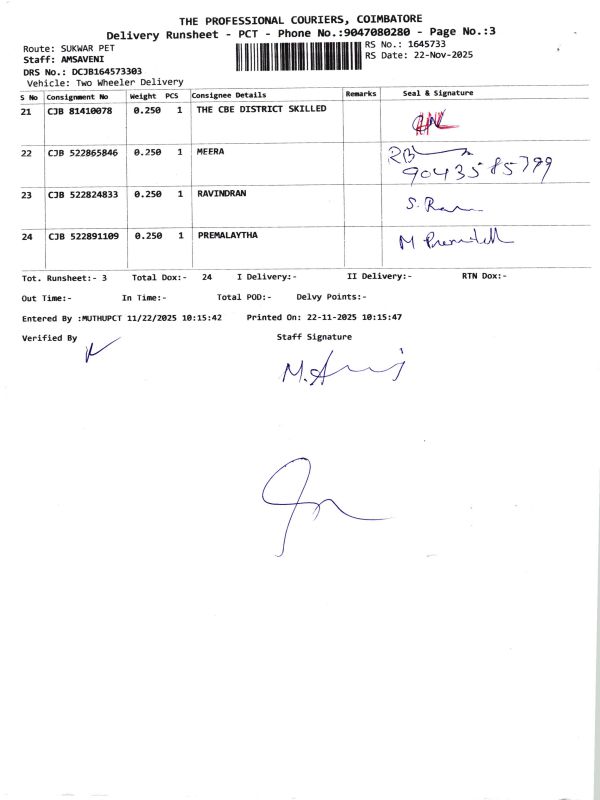 THE PROFESSIONAL COURIERS, COIMBATORE
Delivery Runsheet - PCT - Phone No.:9047080280 - Page No.:3
Route: SUKWAR PET
RS No.: 1645733
Staff: AMSAVENI
RS Date: 22-Nov-2025
DRS No.: DCJB164573303
Vehicle: Two Wheeler Delivery
S No Consignment No Weight PCS Consignee Details Remarks Seal & Signature
21 CJB 81410078 0.250 1 THE CBE DISTRICT SKILLED
22 CJB 522865846 0.250 1 MEERA
9043585799
23 CJB 522824833 0.250 1 RAVINDRAN S. Ram
24 CJB 522891109 0.250 1 PREMALAYTHA M
Tot. Runsheet:- 3 Total Dox:- 24 I Delivery:- II Delivery:- RTN Dox:-
Out Time:- In Time:- Total POD:- Delvy Points:-
Entered By :MUTHUPCT 11/22/2025 10:15:42 Printed On: 22-11-2025 10:15:47
Verified By Staff Signature